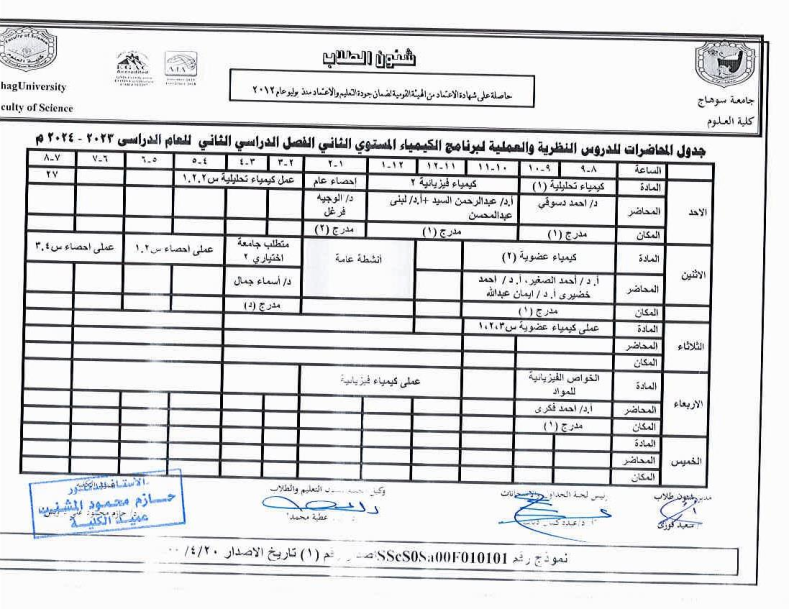 شئون الطلاب
حاصلة على شهادة الاعتماد من الهيئة القومية لضمان جودة التعليم والاعتماد منذ يوليو عام ٢٠١٢
جامعة سوهاج
كلية العلوم
hagUniversity
culty of Science
جدول المحاضرات للدروس النظرية والعملية لبرنامج الكيمياء المستوي الثاني الفصل الدراسي الثاني للعام الدراسى ٢٠٢٣ - ٢٠٢٤ م
الساعة ٨-٩ ٩-١٠ ١٠-١١ ١١-١٢ ١٢-١ ١-٢ ٢-٣ ٣-٤ ٤-٥ ٥-٦ ٦-٧ ٧-٨
الاحد
المادة كيمياء تحليلية (١) كيمياء فيزيائية ٢ إحصاء عام عمل كيمياء تحليلية س١،٢،٢ ٢٧
المحاضر د/ احمد دسوقي أ.د/ عبدالرحمن السيد +أ.د/ لبنى عبدالمحسن د/ الوجيه فرغل
المكان مدرج (١) مدرج (١) مدرج (٢)
الاثنين
المادة كيمياء عضوية (٢) أنشطة عامة متطلب جامعة اختياري ٢ عملى احصاء س١،٢ عملى احصاء س٣،٤
المحاضر أ.د/ أحمد الصغير، أ.د/ احمد خضيرى أ.د/ ايمان عبدالله د/ أسماء جمال
المكان مدرج (١) مدرج (د)
الثلاثاء
المادة عملى كيمياء عضوية س١،٢،٣
المحاضر
المكان
الاربعاء
المادة الخواص الفيزيائية للمواد عملى كيمياء فيزيائية
المحاضر أ.د/ احمد فكرى
المكان مدرج (١)
الخميس
المادة
المحاضر
المكان
مدير شئون طلاب
سعيد فوزى
التعليم والطلاب
عطية محمد
حازم محمود المشنب
عميد الكلية
نموذج رقم SScS0Sa00F010101 اصدار رقم (١) تاريخ الاصدار ٤/٢٠/ ٠٠